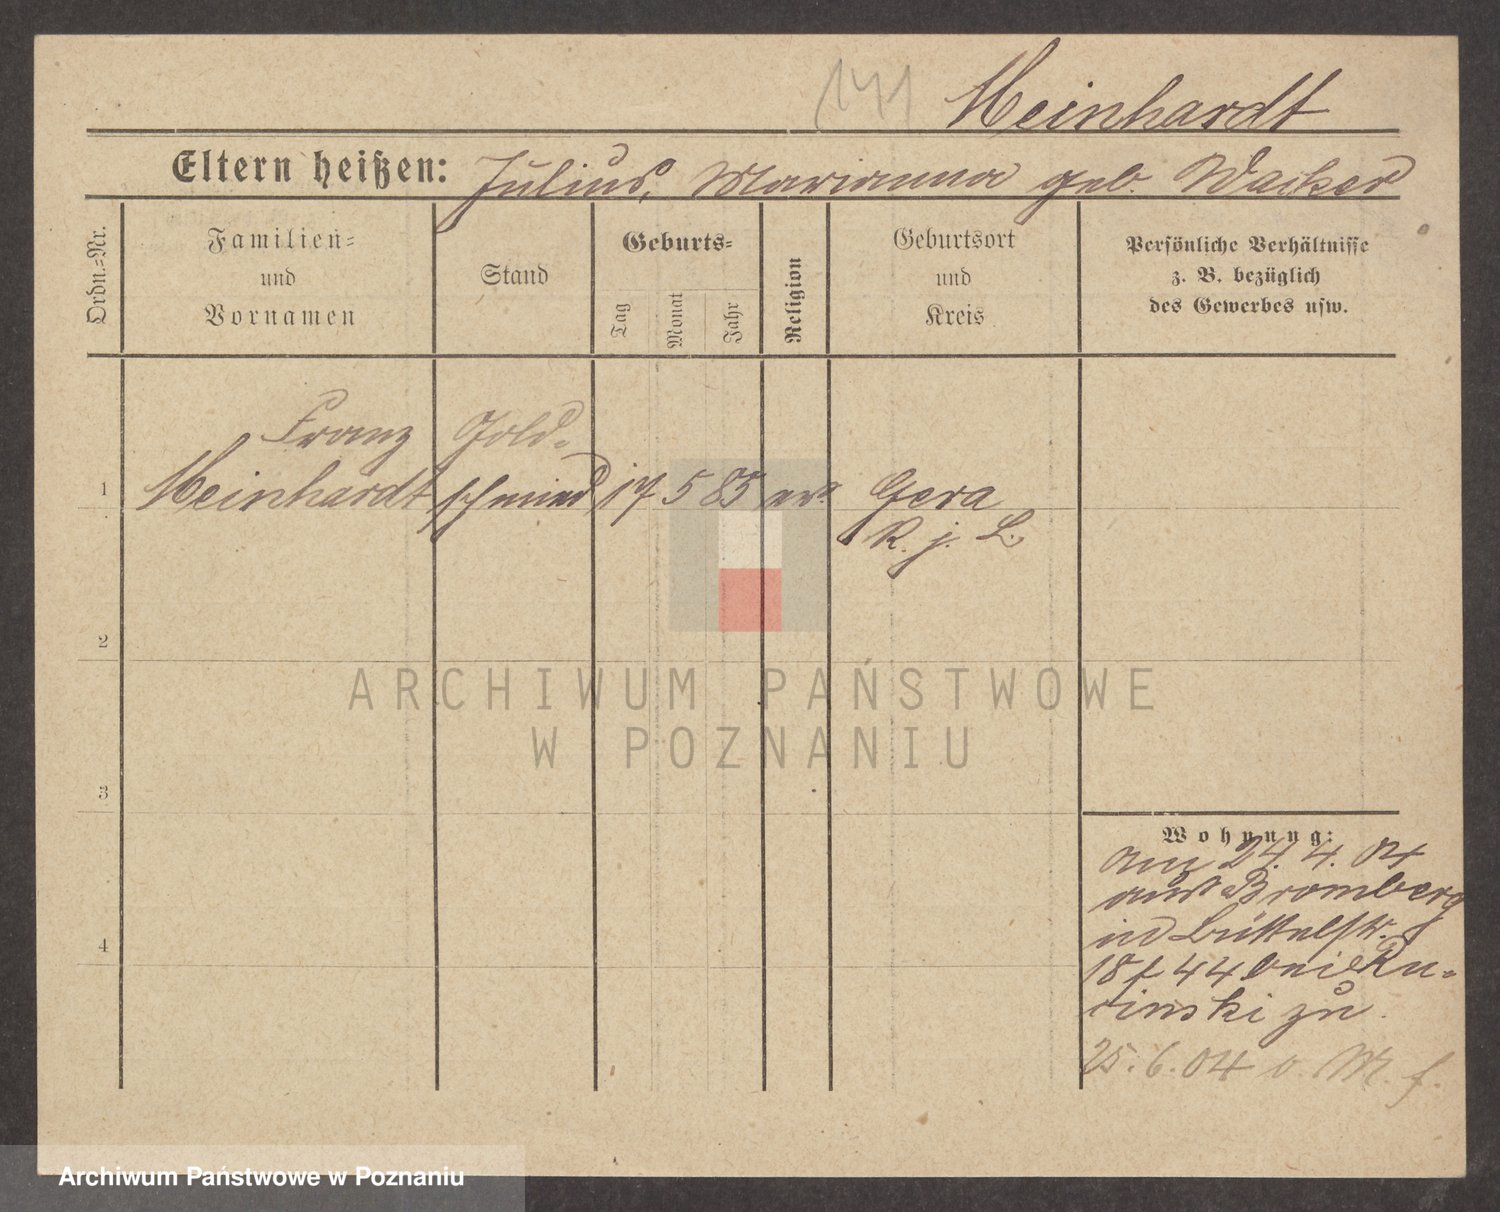 141 Meinhardt
Eltern heißen: Julius, Marianna geb. Wacker
Ordn.=Nr.
Familien=
und
Vornamen
Stand
Geburts=
Tag
Monat
Jahr
Religion
Geburtsort
und
Kreis
Persönliche Verhältnisse
z. B. bezüglich
des Gewerbes usw.
Franz Gold-
1 Meinhardt schmied 17 5 85 ev. Gera
R. j. L.
2
ARCHIWUM PAŃSTWOWE
W POZNANIU
3
Wohnung:
am 24. 4. 04
aus Bromberg
in
18 f 44 bei Ru-
zinski zu
25. 6. 04 o. M. f.
4
Archiwum Państwowe w Poznaniu